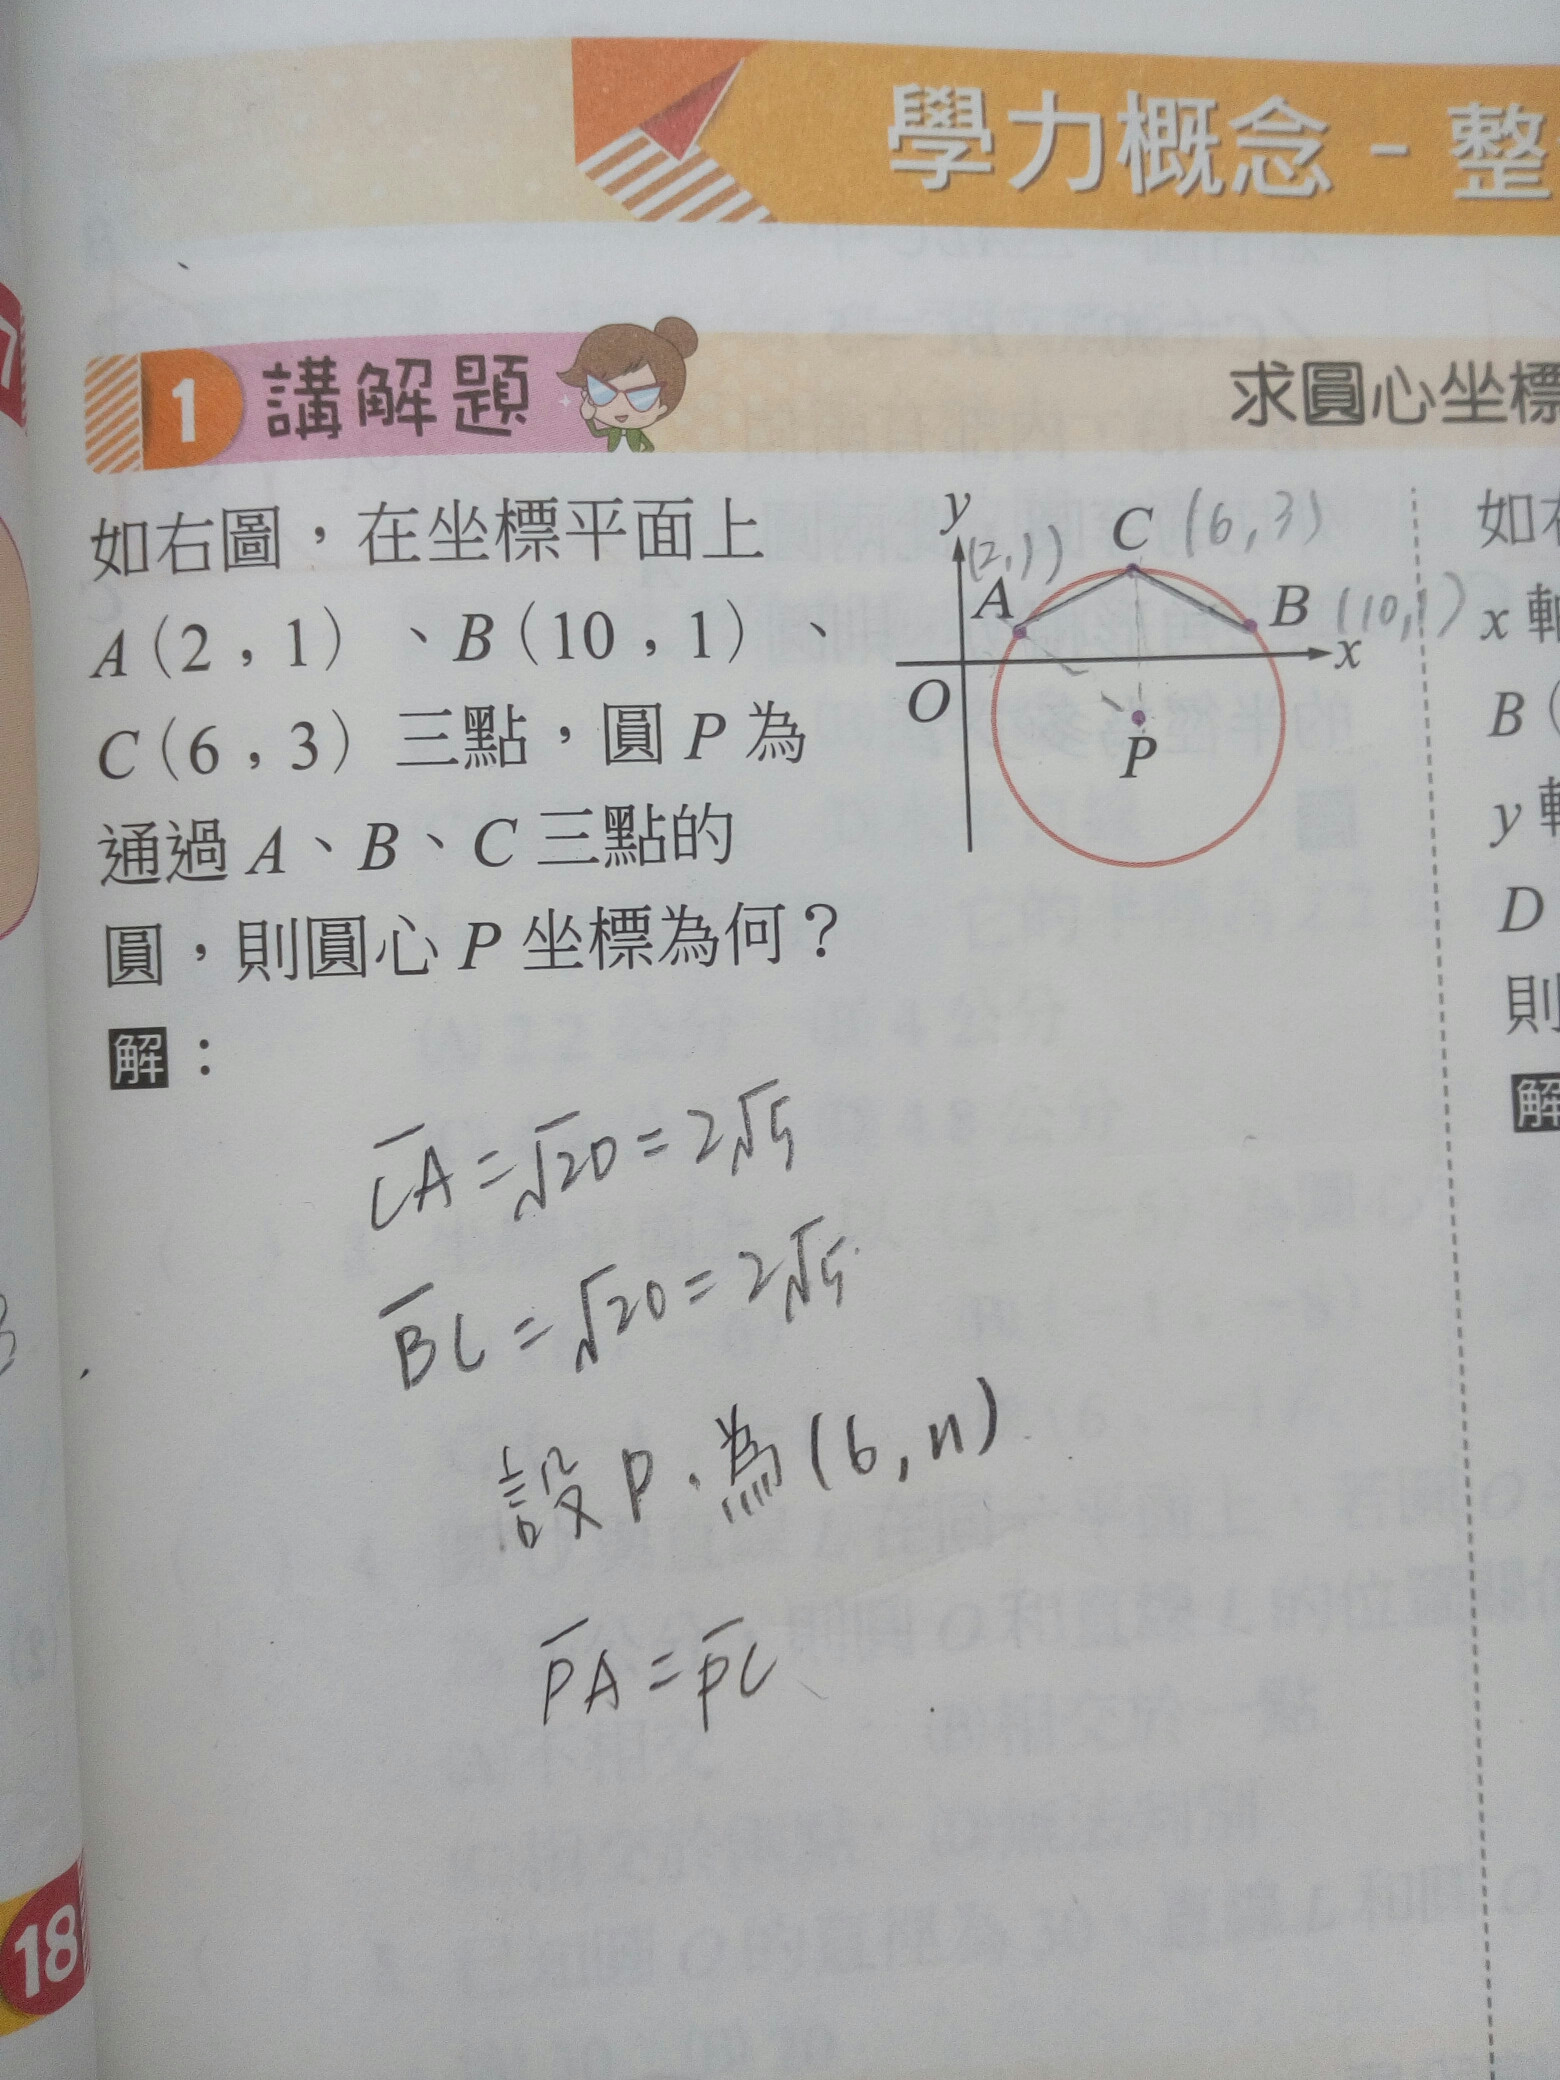 學力概念 - 整
1 講解題
求圓心坐標
如右圖，在坐標平面上
A（2，1）、B（10，1）、
C（6，3）三點，圓 P 為
通過 A、B、C 三點的
圓，則圓心 P 坐標為何？
y
(2,1)
C (6,3)
A
B (10,1)
x
O
P
解：
C̅A̅=√20=2√5
B̅C̅=√20=2√5
設P.為(6,n)
P̅A̅=P̅C̅
如
x 軸
B（
y 軸
D
則
解
18